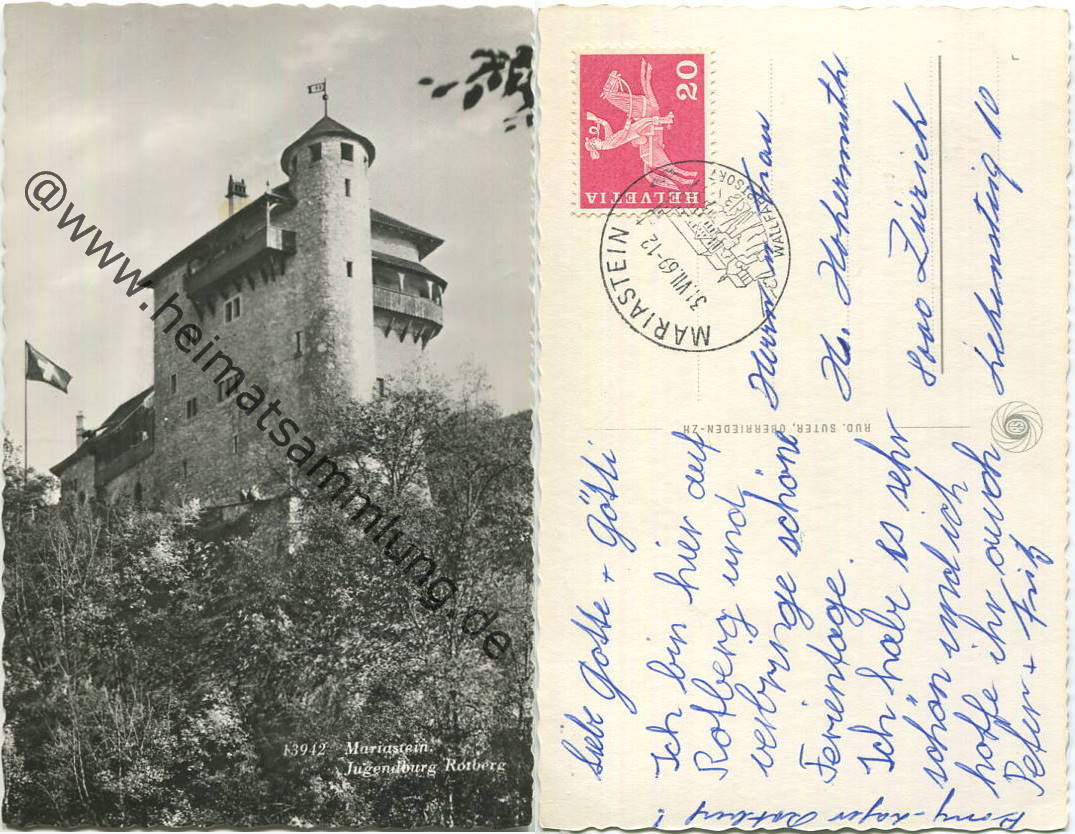 @www.heimatsammlung.de
13942 Mariastein
Jugendburg Rotberg
HELVETIA 20
MARIASTEIN
31.VII.69-12
WALLFAHRTSORT
RUD. SUTER, OBERRIEDEN-ZH
Liebe Gotte + Götti
Ich bin hier auf
Rotberg und
verbringe schöne
Ferientage.
Ich habe es sehr
schön und ich
hoffe ihr auch
Peter + Fritz
Rotberg!
Herrn + Frau
H. Hohermuth
8000 Zürich
10